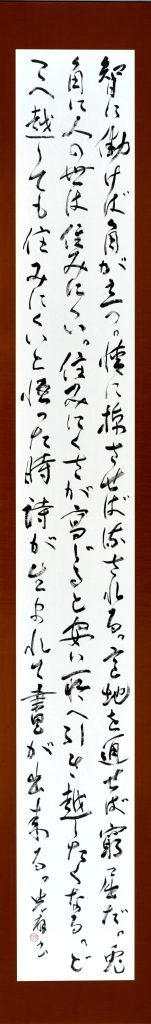 智に働けば角が立つ。情に棹させば流される。意地を通せば窮屈だ。兎
角に人の世は住みにくい。住みにくさが高じると安い所へ引き越したくなる。ど
こへ越しても住みにくいと悟った時詩が生まれて畫が出来る。